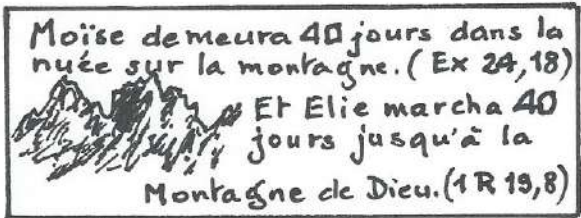 Moïse demeura 40 jours dans la
nuée sur la montagne. (Ex 24,18)
Et Elie marcha 40
jours jusqu'à la
Montagne de Dieu. (1 R 19,8)